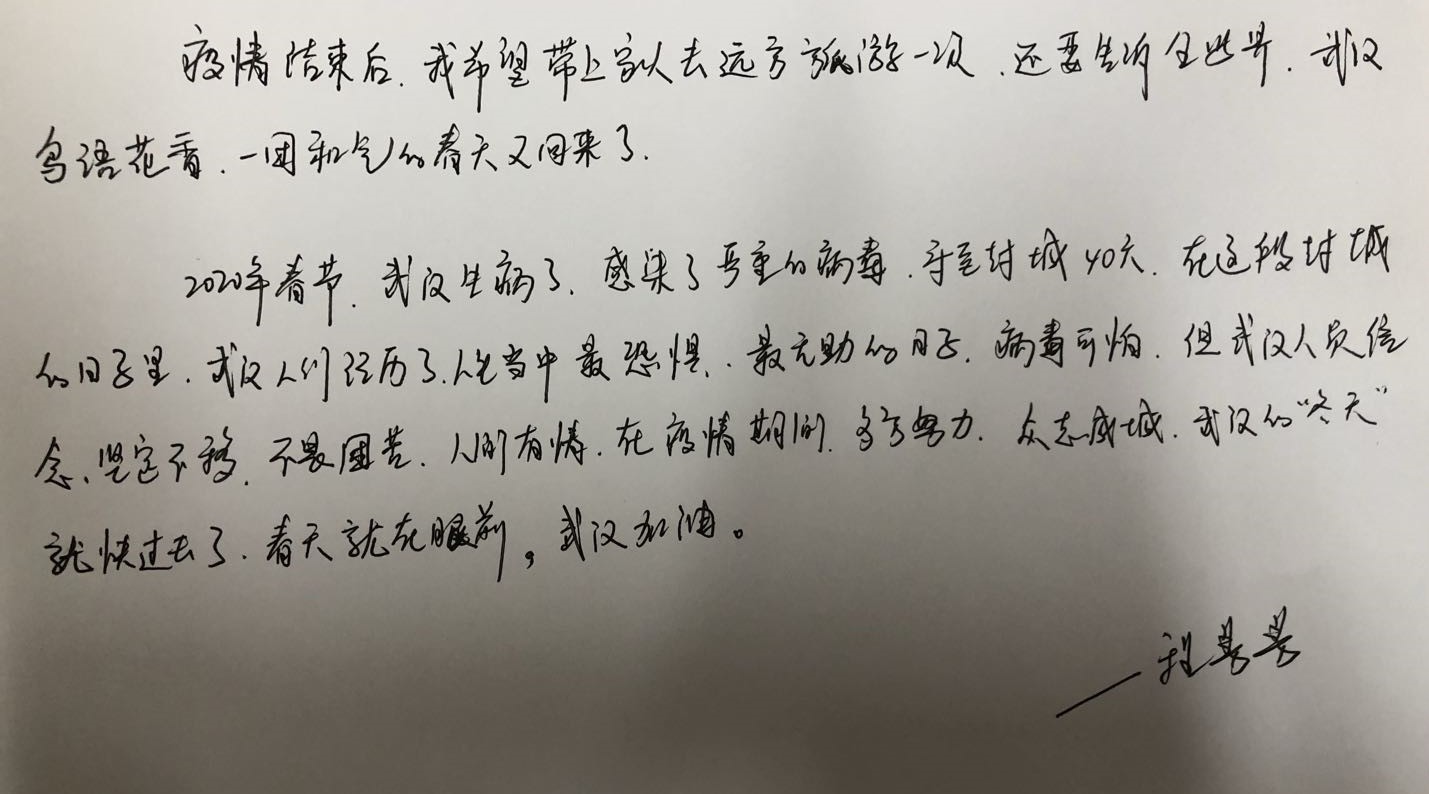 疫情结束后,我希望带上家人去远方旅游一次,还要告诉全世界,武汉
鸟语花香,一团和气的春天又回来了.
2020年春节,武汉生病了,感染了严重的病毒,于至封城40天,在这段封城
的日子里,武汉人们经历了人生当中最恐惧、最无助的日子,病毒可怕,但武汉人员信
念、坚定不移,不畏困苦,人间有情,在疫情期间,多方努力,众志成城,武汉的“冬天”
就快过去了,春天就在眼前,武汉加油。
——程